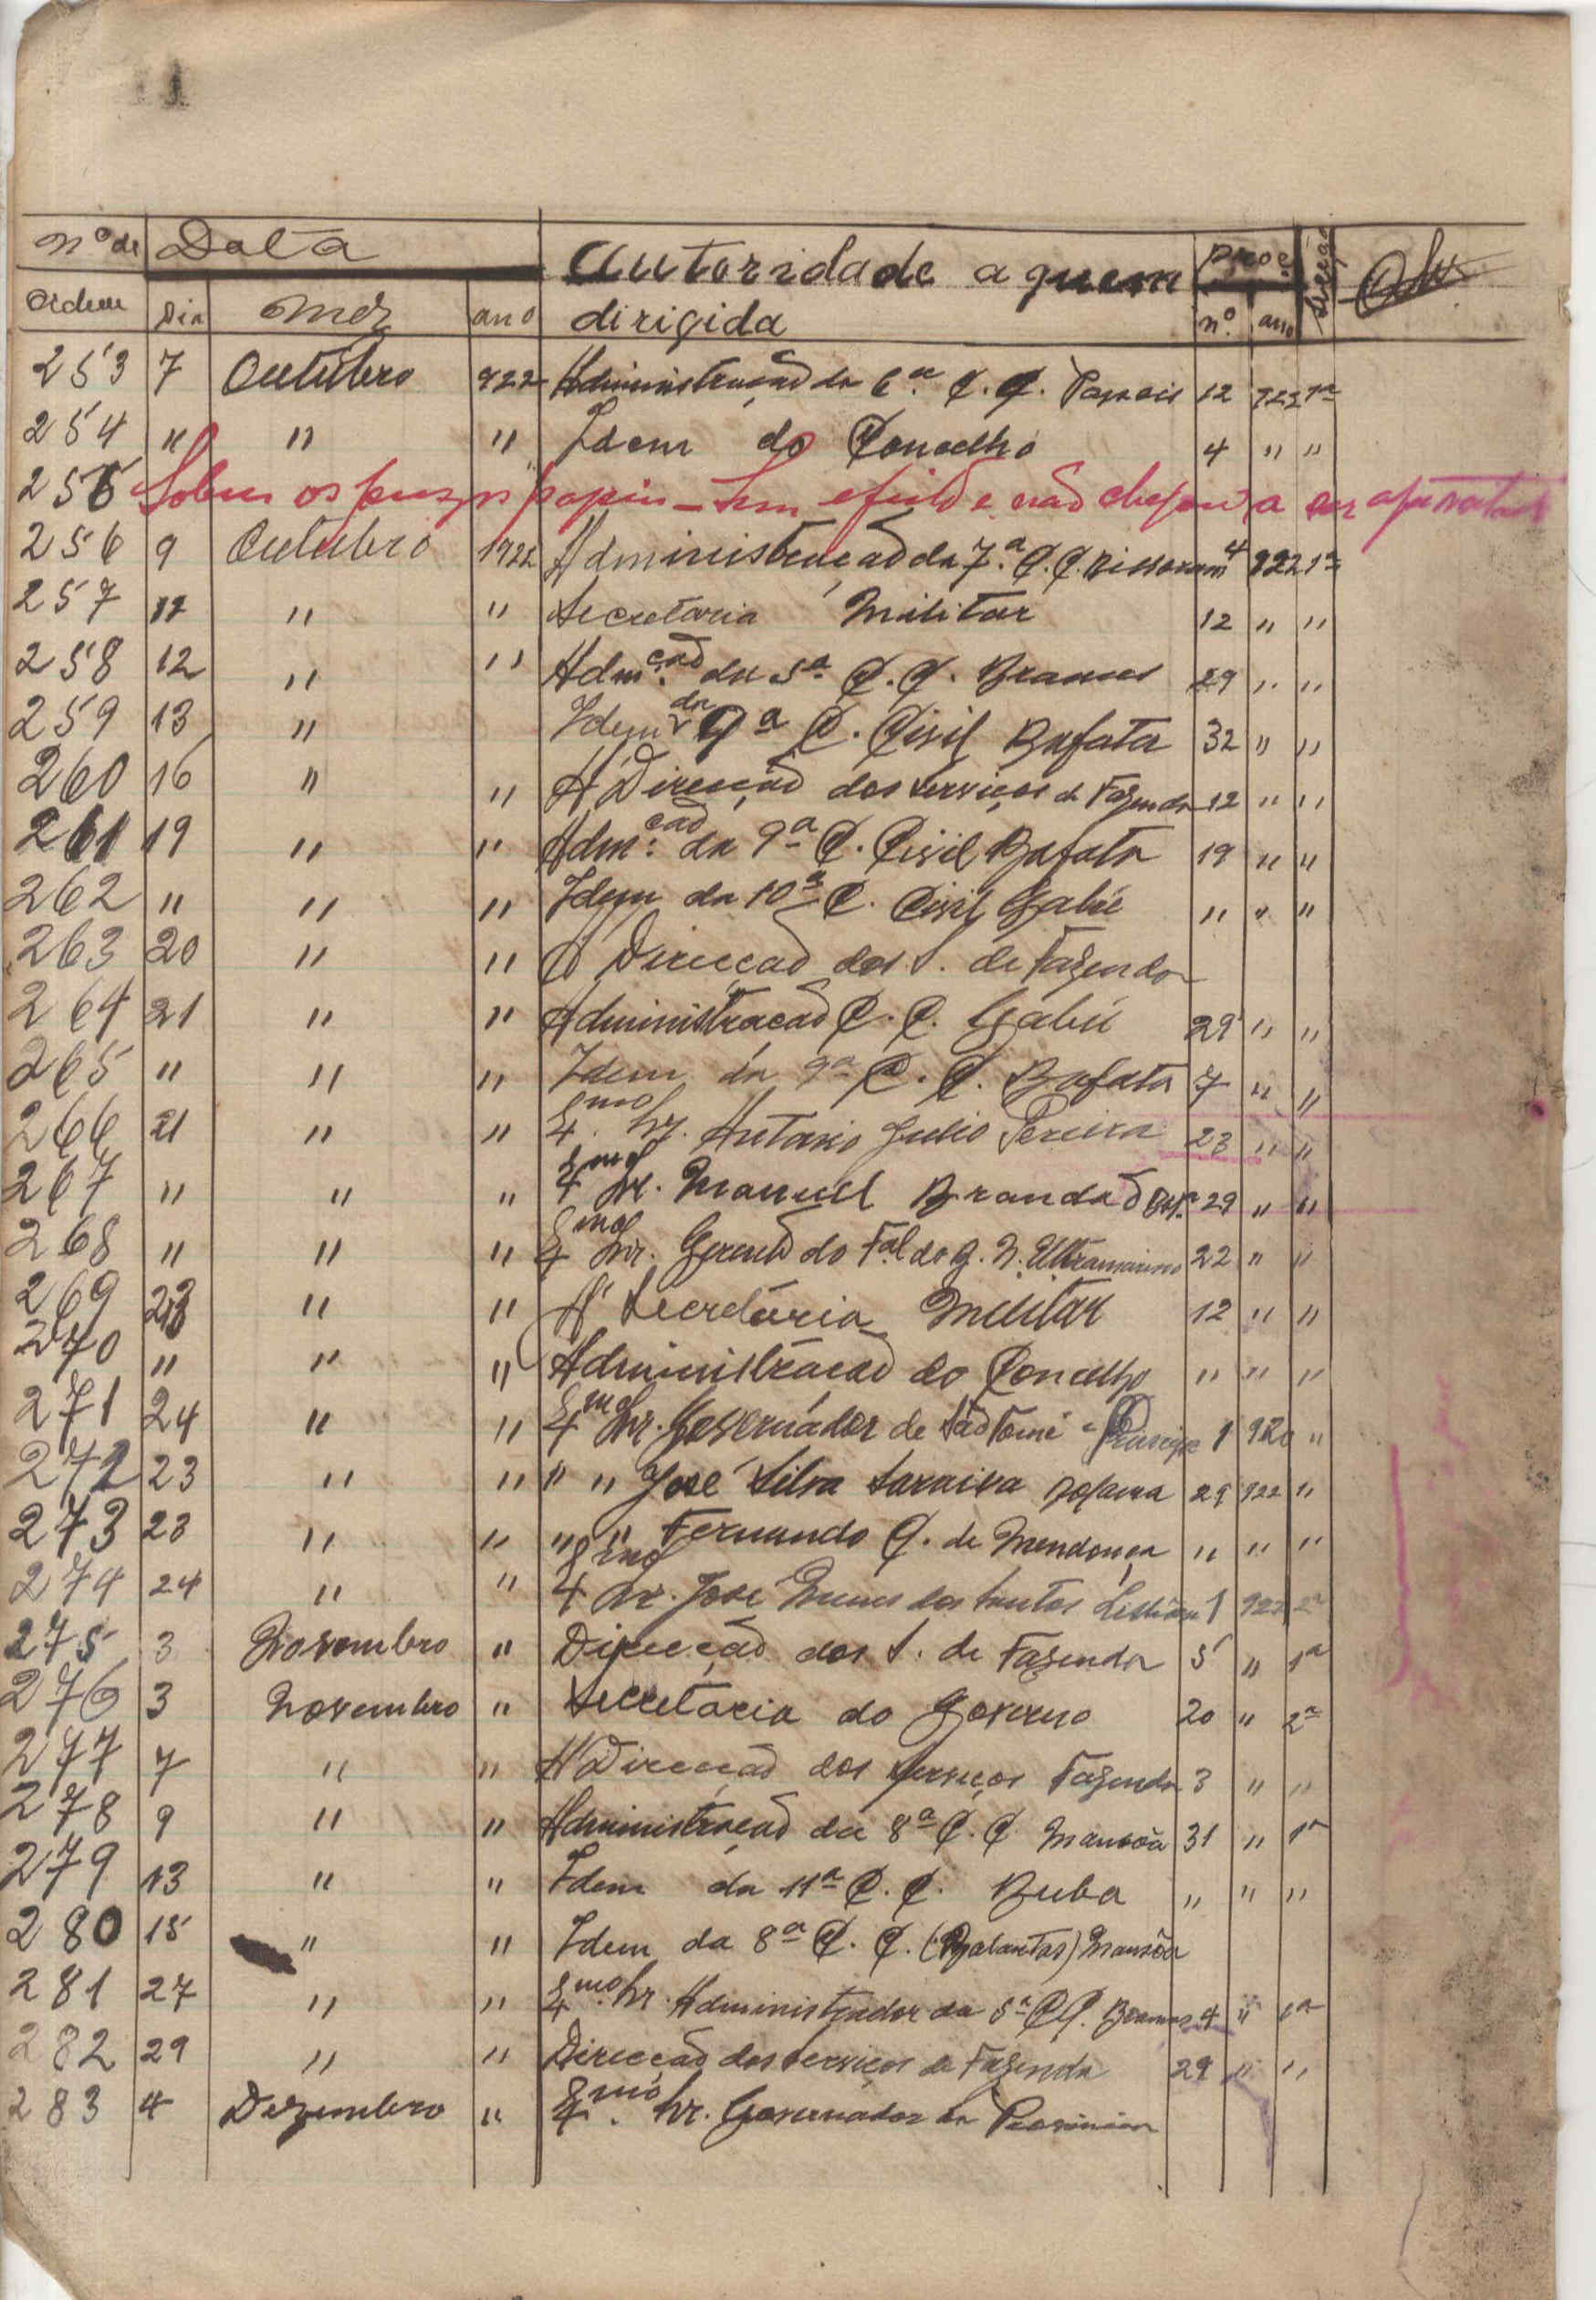 11
nº de Data Autoridade a quem proc. Secção Obs.
Ordem Dia Mez ano dirigida nº ano
253 7 Outubro 922 Administração da 6.ª C. C. Papeis 12 922 1ª
254 " " " Idem do Concelho 4 " "
255 Sobre os papeis - Sem efeito e não chegou a ser
256 9 Outubro 1922 Administração da 7.ª C. C. Bissoram 4 922 1ª
257 11 " " Secretaria Militar 12 " "
258 12 " " Adm.ção da 5ª C. C. Brames 29 " "
259 13 " Idem da 9ª C. Civil Bafata 32 " "
260 16 " " A' Direcção dos Serviços de Fazenda 12 " "
261 19 " " Adm.ção da 9ª C. Civil Bafata 19 " "
262 " " " Idem da 10ª C. Civil Gabú " " "
263 20 " " A' Direcção dos S. de Fazenda
264 21 " " Administração C. C. Gabú 29 " "
265 " " " Idem da 9ª C. C. Bafatá 7 " "
266 21 " " Exmo. Sr. Antonio Julio Pereira 23 " "
267 " " " Exmo Sr. Manuel Brandão 29 " "
268 " " " Exmo Snr. Gerente da Fal do B. N. Ultramarino 22 " "
269 23 " " A' Secretária Militar 12 " "
270 " " " Administração do Concelho " " "
271 24 " " Exmo Sr. Governador de São Tomé e Principe 1 920 "
272 23 " " " " José Silva Saraiva Bolama 29 922 "
273 23 " " " " Fernando C. de Mendonça " " "
274 24 " " Exmo Sr. José Nunes dos Santos Lisbôa 1 922 2ª
275 3 Novembro " Direcção dos S. de Fazenda 5 " 1ª
276 3 Novembro " Secretaria do Governo 20 " 2ª
277 7 " " A' Direcção dos Serviços Fazenda 3 " "
278 9 " " Administração da 8ª C. C. Mansôa 31 " 1ª
279 13 " " Idem da 11ª C. C. Buba " " "
280 15 " " Idem da 8ª C. C. (Balantas) Mansôa
281 27 " " Exmo. Sr. Administrador da 5ª C. C. Brames 4 " 1ª
282 29 " " Direcção dos Serviços de Fazenda 29 " "
283 4 Dezembro " Exmo. Sr. Governador da Provincia